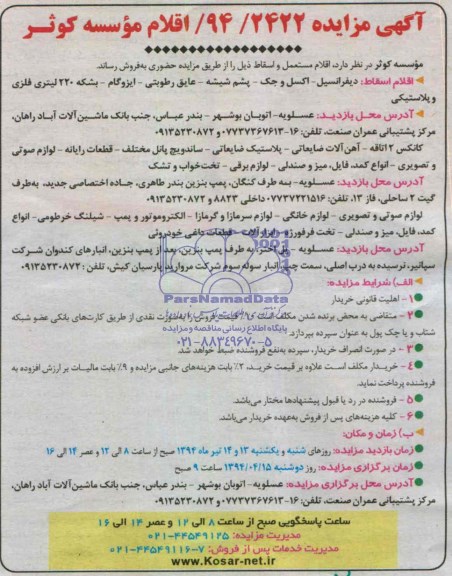 آگهی مزایده ۲۴۲۲/ ۹۴/ اقلام مؤسسه کوثر
مؤسسه کوثر در نظر دارد، اقلام مستعمل و اسقاط ذیل را از طریق مزایده حضوری به‌فروش رساند.
اقلام اسقاط: دیفرانسیل - اکسل و جک - پشم شیشه - عایق رطوبتی - ایزوگام - بشکه ۲۲۰ لیتری فلزی
و پلاستیکی
آدرس محل بازدید: عسلویه- اتوبان بوشهر - بندر عباس، جنب بانک ماشین‌آلات آباد راهان،
مرکز پشتیبانی عمران صنعت، تلفن: ۱۶-۰۷۷۳۷۳۶۷۶۱۳ و ۰۹۱۳۵۲۳۰۸۷۲
کانکس ۲ اتاقه - آهن آلات ضایعاتی - پلاستیک ضایعاتی - ساندویچ پانل مختلف - قطعات رایانه - لوازم صوتی
و تصویری - انواع کمد، فایل، میز و صندلی - لوازم برقی - تخت‌خواب و تشک
آدرس محل بازدید: عسلویه- سه طرف کنگان، پمپ بنزین بندر طاهری، جاده اختصاصی جدید، به‌طرف
گیت ۲ ساحلی، فاز ۱۳، تلفن: ۰۷۷۳۷۲۲۱۵۱۶ داخلی ۸۸۲۳ و ۰۹۱۳۵۲۳۰۸۷۲
لوازم صوتی و تصویری - لوازم خانگی - لوازم سرمازا و گرمازا - الکتروموتور و پمپ - شیلنگ خرطومی - انواع
کمد، فایل، میز و صندلی - تخت فرفورژه - ابزارآلات - قطعات داغی خودروئی
آدرس محل بازدید: عسلویه - به طرف پمپ بنزین، بعد از پمپ بنزین، انبارهای کندوان شرکت
سپانیر، نرسیده به درب اصلی، سمت چپ، انبار سوله سوم شرکت مروارید پارسیان کیش، تلفن: ۰۹۱۳۵۲۳۰۸۷۲
الف) شرایط مزایده:
۱- اهلیت قانونی خریدار
۲- متقاضی به محض برنده شدن مکلف است ۱۰٪ قیمت فروش را به‌صورت نقدی از طریق کارت‌های بانکی عضو شبکه
شتاب و یا چک پول به عنوان سپرده بپردازد.
۳- در صورت انصراف خریدار، سپرده به‌نفع فروشنده ضبط خواهد شد.
۴- خریدار مکلف است علاوه بر قیمت خرید، ۲٪ بابت هزینه‌های جانبی مزایده و ۹٪ بابت مالیات بر ارزش افزوده به
فروشنده پرداخت نماید.
۵- فروشنده در رد یا قبول پیشنهادها مختار می‌باشد.
۶- کلیه هزینه‌های پس از فروش به‌عهده خریدار می‌باشد.
ب) زمان و مکان:
زمان بازدید مزایده: روزهای شنبه و یکشنبه ۱۳ و ۱۴ تیر ماه ۱۳۹۴ صبح از ساعت ۸ الی ۱۲ و عصر ۱۴ الی ۱۶
زمان برگزاری مزایده: روز دوشنبه ۱۳۹۴/۰۴/۱۵ ساعت ۹ صبح
آدرس محل برگزاری مزایده: عسلویه- اتوبان بوشهر - بندر عباس، جنب بانک ماشین‌آلات آباد راهان،
مرکز پشتیبانی عمران صنعت، تلفن: ۱۶-۰۷۷۳۷۳۶۷۶۱۳ و ۰۹۱۳۵۲۳۰۸۷۲
ساعت پاسخگویی صبح از ساعت ۸ الی ۱۲ و عصر ۱۴ الی ۱۶
مدیریت مزایده: ۴۴۵۴۹۱۲۵-۰۲۱
مدیریت خدمات پس از فروش: ۷-۴۴۵۴۹۱۱۶-۰۲۱
www.Kosar-net.ir
ParsNamadData
پایگاه اطلاع رسانی مناقصه و مزایده
۰۲۱-۸۸۳۴۹۶۷۰-۵